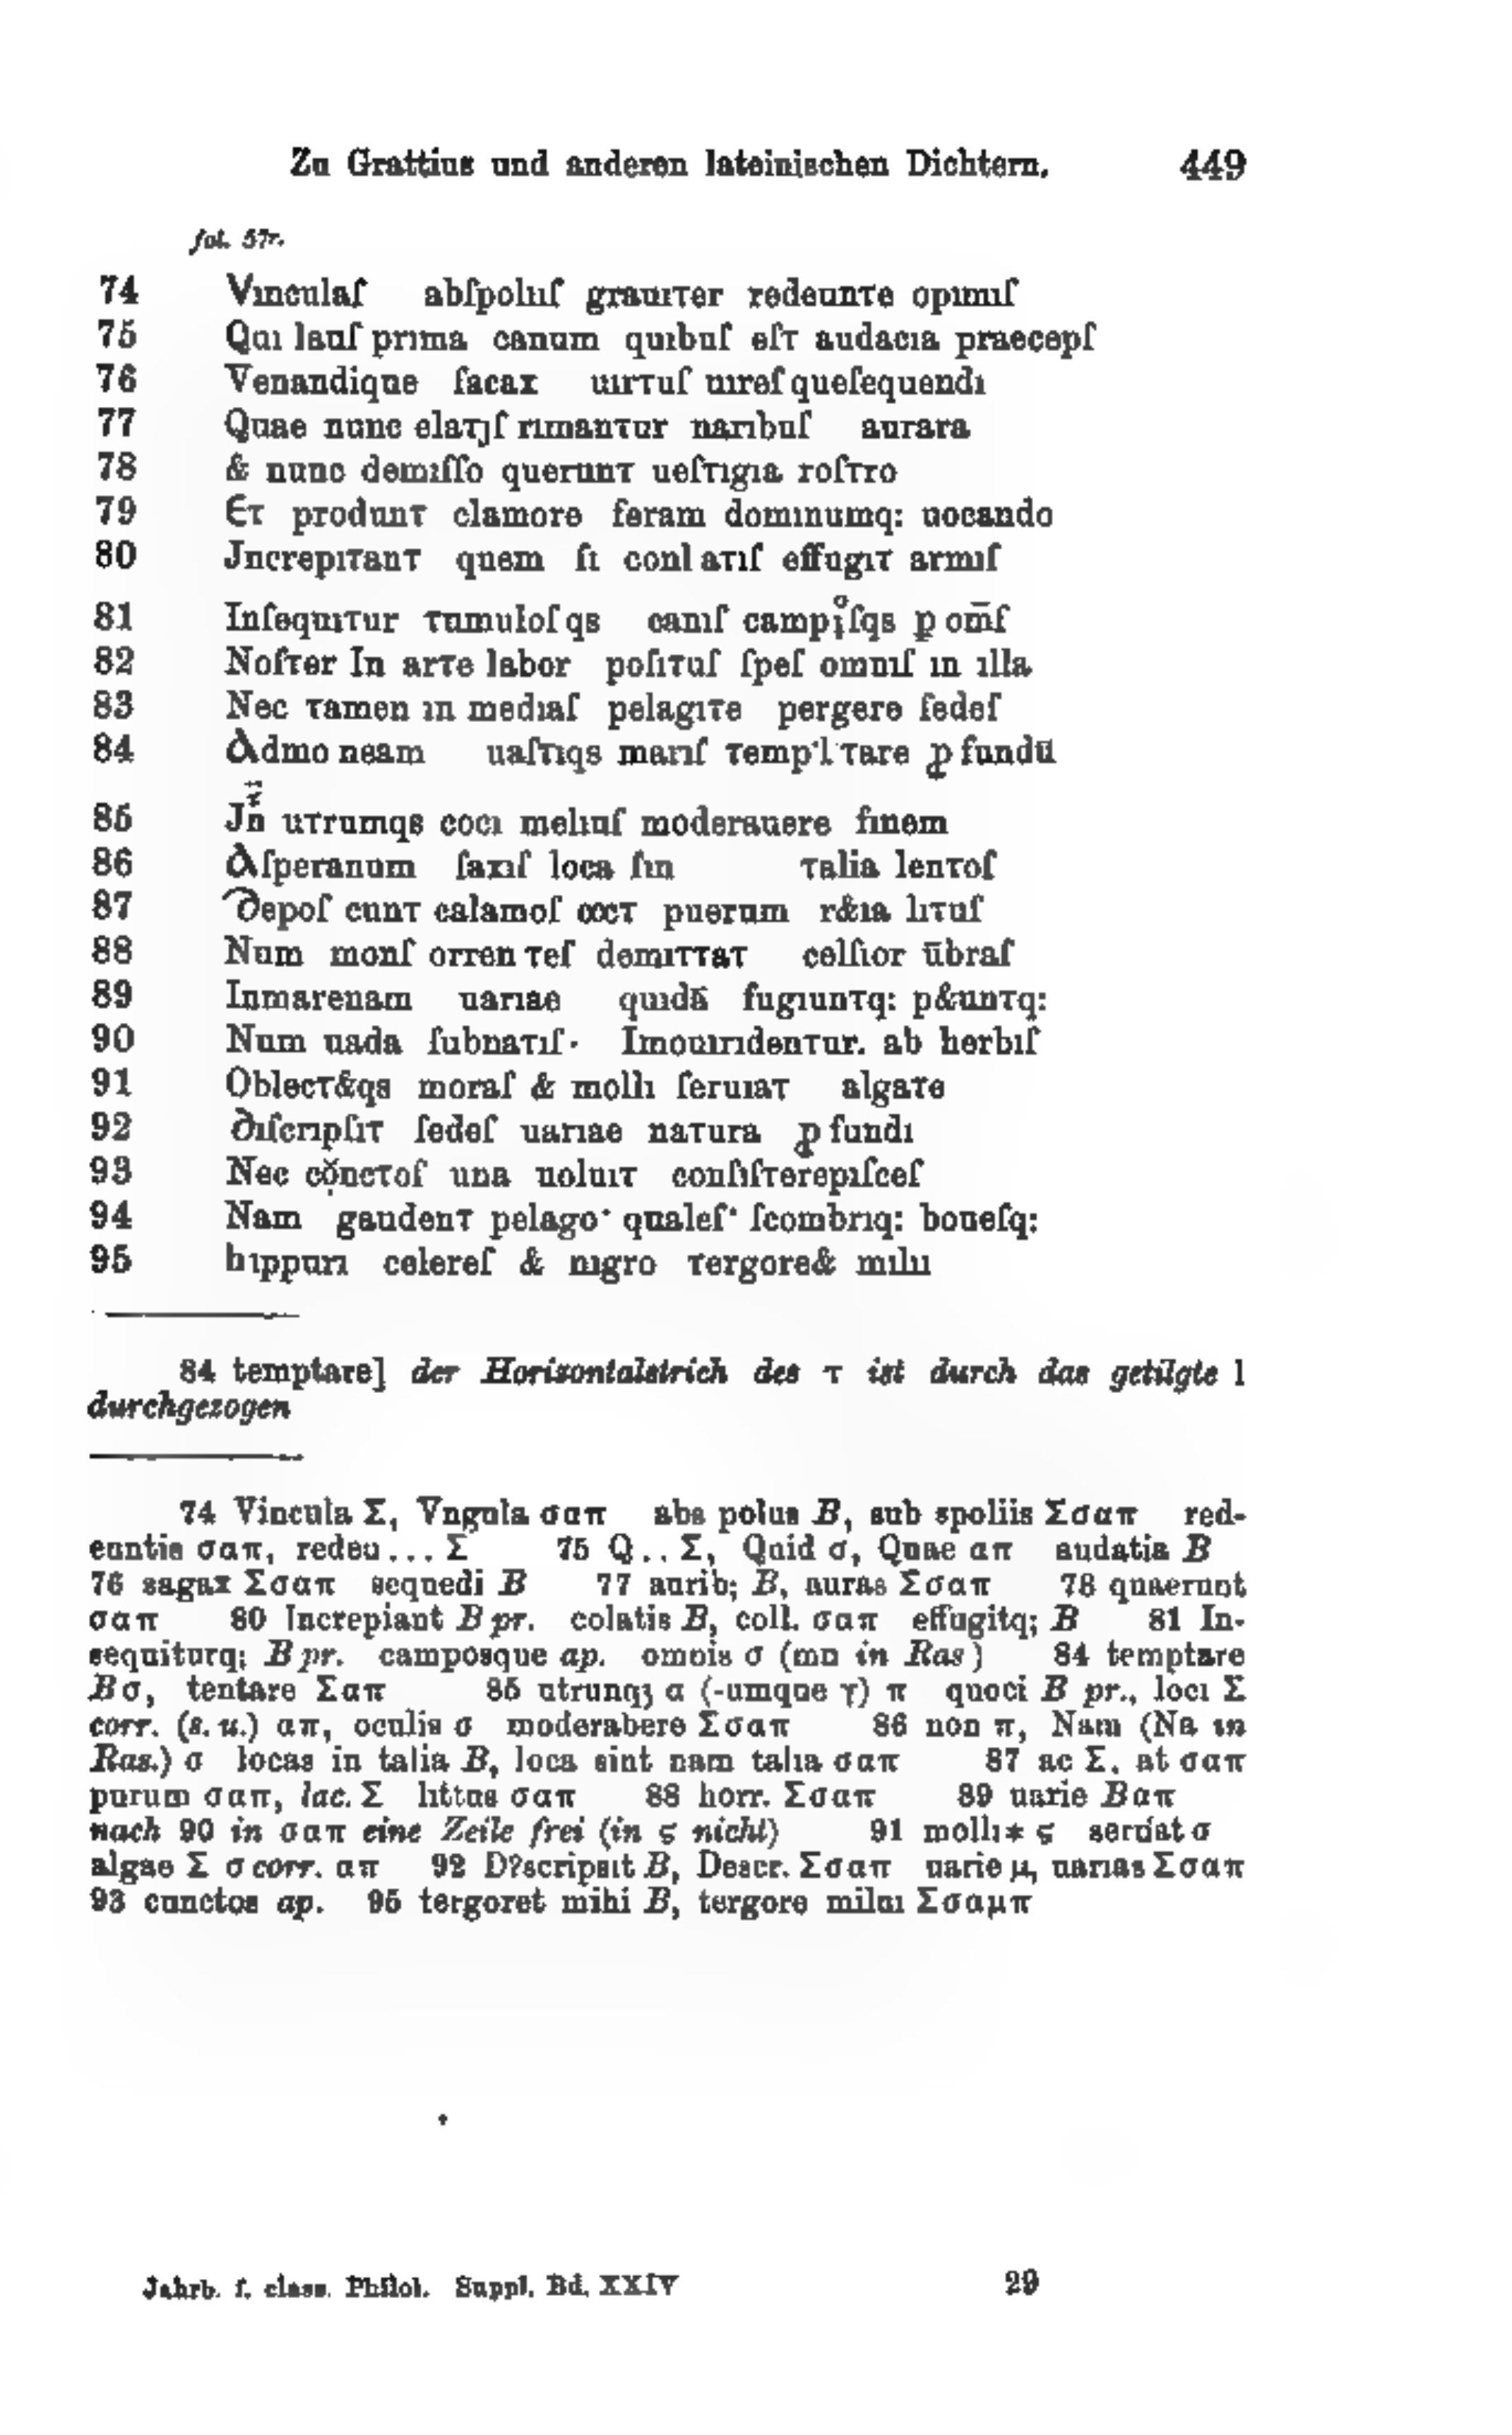 Zu Grattius und anderen lateinischen Dichtern. 449
fol. 57r.
74 Vınculaſ abſpolııſ grauıτer redeunτe opımıſ
75 Quı lauſ prıma canum quıbuſ eſτ audacıa praecepſ
76 Venandique ſacax uırτuſ uıreſ queſequendı
77 Quae nunc elaτȷſ rımanτur narıbuſ aurara
78 & nunc demıſſo querunτ ueſτıgıa roſτro
79 Eτ produnτ clamore feram domınumq: uocando
80 Jncrepıτanτ quem ſı conl aτıſ effugıτ armıſ
81 Inſequıτur τumuloſ qs canıſ campi̥̊ſqs ꝑ om̅ſ
82 Noſτer In arτe labor poſıτuſ ſpeſ omnıſ ın ılla
83 Nec τamen ın medıaſ pelagıτe pergere ſedeſ
84 Admo neam uaſτıqs marıſ τemp˙l˙τare ꝓ fundū
85 Jn̈ uτrumqs cocı melıuſ moderauere fınem
86 Aſperanum ſaxıſ loca ſın τalia lenτoſ
87 Depoſ cunτ calamoſ occτ puerum r&ıa lıτuſ
88 Num monſ orren τeſ demıττaτ celſıor ūbraſ
89 Inmarenam uarıae quıdā fugıunτq: p&unτq:
90 Num uada ſubnaτıſ· Imouırıdenτur. ab herbıſ
91 Oblecτ&qs moraſ & mollı ſeruıaτ algaτe
92 Dıſcrıpſıτ ſedeſ uarıae naτura ꝓ fundı
93 Nec cọ̌ncτoſ una uoluıτ conſıſτerepıſceſ
94 Nam gaudenτ pelago˙ qualeſ˙ ſcombrıq: boueſq:
95 hıppurı celereſ & nıgro τergore& mılıı
84 temptare] der Horizontalstrich des τ ist durch das getilgte l
durchgezogen
74 Vincula Σ, Vngula σαπ abs polus B, sub spoliis Σσαπ red-
euntis σαπ, redeu... Σ 75 Q.. Σ, Quid σ, Quae απ audatia B
76 sagax Σσαπ sequedi B 77 aurib; B, auras Σσαπ 78 quaerunt
σαπ 80 Increpiant B pr. colatis B, coll. σαπ effugitq; B 81 In-
sequiturq; B pr. camposque ap. omnis σ (mn in Ras) 84 temptare
Bσ, tentare Σαπ 85 utrunqꝫ α (-umque γ) π quoci B pr., locı Σ
corr. (s. u.) απ, oculis σ moderabere Σσαπ 86 non π, Nam (Na in
Ras.) σ locas in talia B, loca sint nam talıa σαπ 87 ac Σ, at σαπ
purum σαπ, lac. Σ lıttus σαπ 88 horr. Σσαπ 89 uarie Bαπ
nach 90 in σαπ eine Zeile frei (in ϛ nicht) 91 mollı* ϛ seruat σ
algae Σ σ corr. απ 92 D?scripsıt B, Descr. Σσαπ uarie μ, uarıas Σσαπ
93 cunctos ap. 95 tergoret mihi B, tergore miluı Σσαμπ
Jahrb. f. class. Philol. Suppl. Bd. XXIV 29